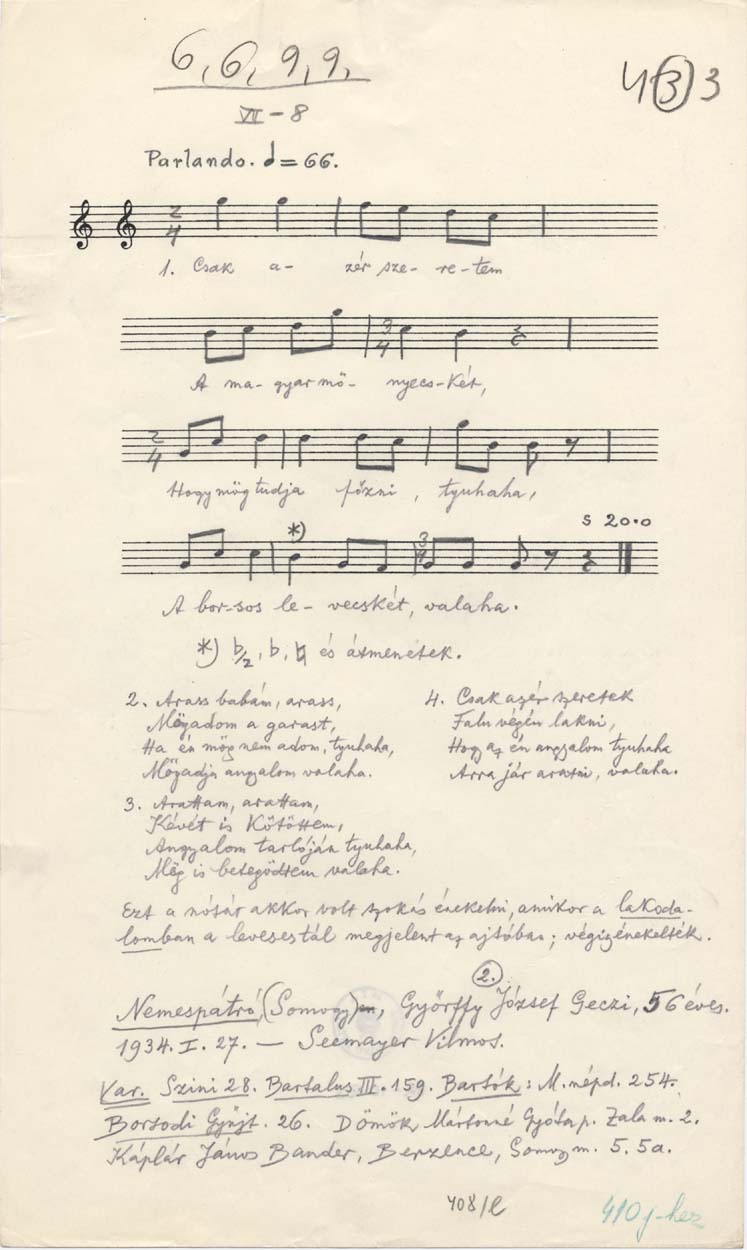 6, 6, 9, 9,
4 3 3
VII - 8
Parlando. = 66.
2/4
1. Csak a- zér sze- re-tem
3/4
A ma- gyar mö- nyecs-két,
2/4
Hogy mög tudja főzni, tyuhaha,
s 20·0
*)
3/4
A bor-sos le- vecskét, valaha.
*) b/2, b, ♮ és átmenetek.
2. Arass babám, arass,
Mögadom a garast,
Ha én mög nem adom, tyuhaha,
Mögadja angyalom valaha.
3. Arattam, arattam,
Kévét is kötöttem,
Angyalom tarlóján tyuhaha,
Még is betegödtem valaha.
4. Csak azér szeretek
Falu végén lakni,
Hogy az én angyalom tyuhaha
Arra jár aratni, valaha.
Ezt a nótát akkor volt szokás énekelni, amikor a lakoda-
lomban a levesestál megjelent az ajtóban; végigénekelték.
2.
Nemespátró, (Somogy) Györffy József Geczi, 56 éves.
1934. I. 27. — Seemayer Vilmos.
Var. Szini 28. Bartalus III. 159. Bartók: M. népd. 254.
Borsodi Gyűjt. 26. Dömök Mártonné Gyótap. Zala m. 2.
Káplár János Bander, Berzence, Somogy m. 5. 5a.
408/l
410j-hez